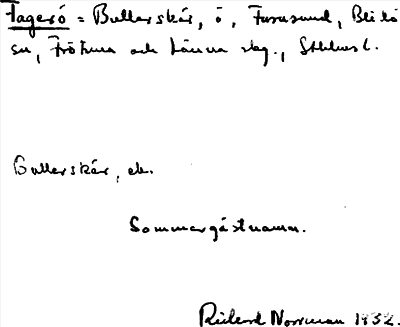 Fagerö = Bullerskär, ö, Furusund, Blidö
sn, Frötuna och Länna skg., Sthlms l.
Bullerskär, ek.
Sommargästnamn.
Rickard Norrman 1932.